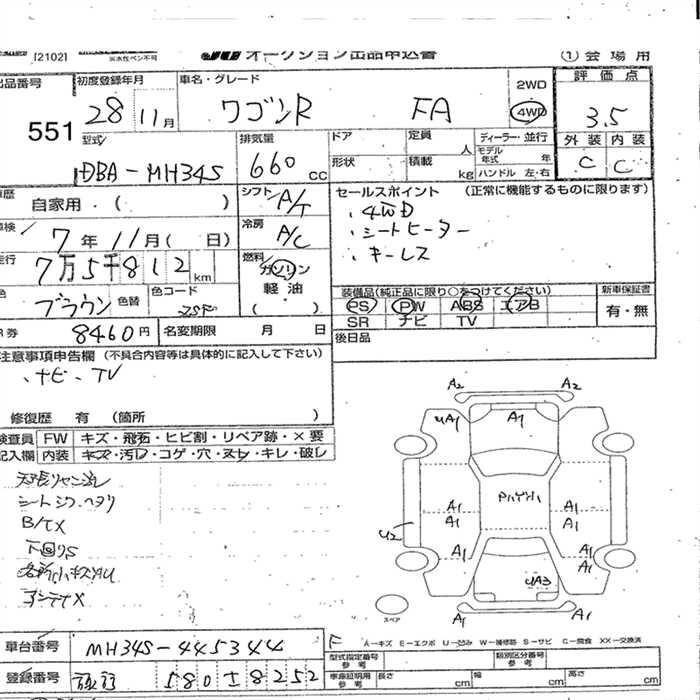 [2102]
JU オークション出品申込書
① 会場用
出品番号 初度登録年月 車名・グレード 2WD 評価点
551 28 11月 ワゴンR FA 4WD 3.5
型式 排気量 ドア 定員 人 ディーラー・並行 外装 内装
DBA-MH34S 660 CC 形状 積載 kg モデル年式 年 ハンドル 左・右 C C
車歴 自家用・( ) シフト A/T セールスポイント (正常に機能するものに限ります)
車検 7年11月( 日) 冷房 A/C
・4WD
・シートヒーター
・キーレス
走行 7万5千812 km 燃料 ガソリン 軽油 ( )
色 ブラウン 色替 色コード
装備品(純正品に限り○をつけてください) 新車保証書
PS PW ABS エアB 有・無
SR ナビ TV
R券 8460円 名変期限 月 日 後日品
注意事項申告欄 (不具合内容等は具体的に記入して下さい)
、ナビ、TV
修復歴 有 (箇所 )
検査員 FW キズ・飛石・ヒビ割・リペア跡・×要
記入欄 内装 キズ・汚レ・コゲ・穴・ヌレ・キレ・破レ
シートシワ、ヘタリ
下回りS
各所小キズAU
アンテナX
A2 A2
UA1 A1
A1 A1
A1 A1
U2
A1 A1
A1
UA3
A1 A1
スペア
F A−キズ E−エクボ U−凹み W−補修跡 S−サビ C−腐食 XX−交換済
車台番号 MH34S-445344 型式指定番号 参考 類別区分番号 参考
登録番号 580 す 8252 車庫証明用 参考 長さ cm 幅 cm 高さ cm